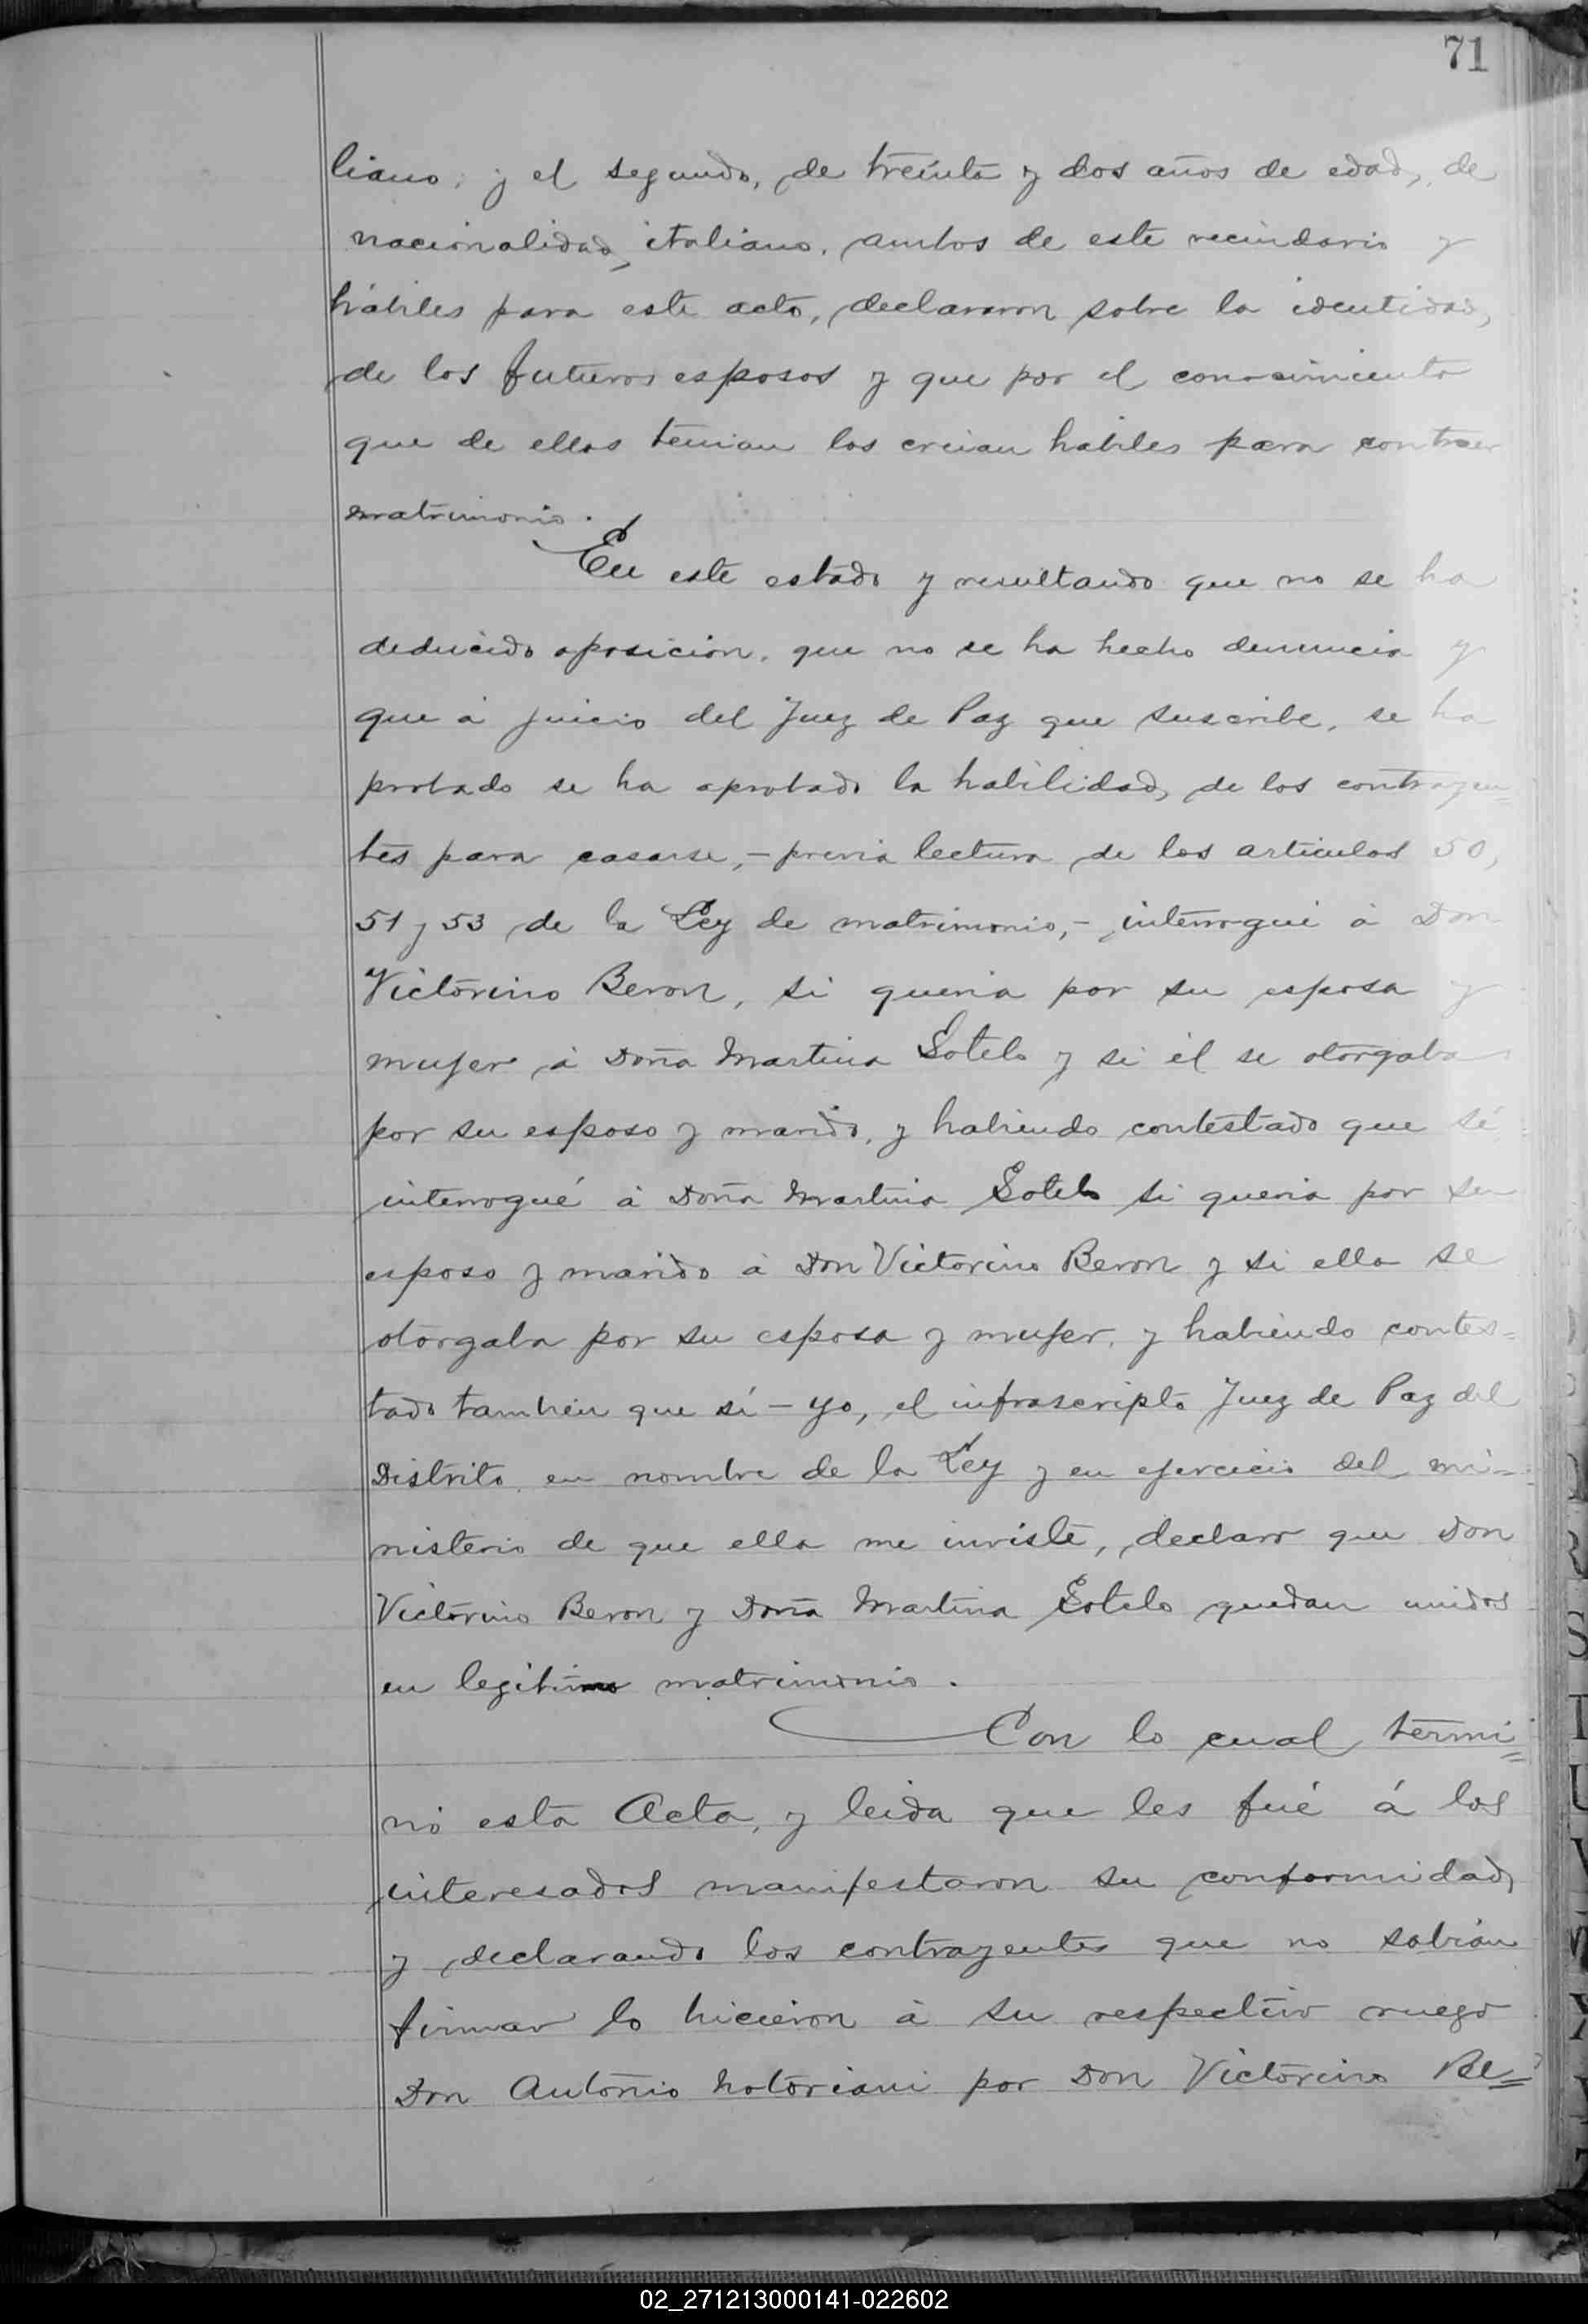 71
liano; y el segundo, de treinta y dos años de edad, de
nacionalidad italiano, ambos de este vecindario y
hábiles para este acto, declararon sobre la identidad,
de los futuros esposos y que por el conocimiento
que de ellos tenian los creian habiles para contraer
matrimonio.
En este estado y resultando que no se ha
deducido oposicion, que no se ha hecho denuncia y
que á juicio del Juez de Paz que suscribe, se ha
probado se ha aprobado la habilidad, de los contrayen=
tes para casarse,- previa lectura de los articulos 50,
51 y 53 de la Ley de matrimonio,- interrogué á Don
Victorino Beron, si queria por su esposa y
mujer á Doña Martina Sotelo y si él se otorgaba
por su esposo y marido, y habiendo contestado que sí
interrogué á Doña Martina Sotelo si queria por su
esposo y marido á Don Victorino Beron y si ella se
otorgaba por su esposa y mujer, y habiendo contes=
tado tambien que sí - yo, el infrascripto Juez de Paz del
Distrito en nombre de la Ley y en ejercicio del mi=
nisterio de que ella me inviste, declaro que Don
Victorino Beron y Doña Martina Sotelo quedan unidos
en legitimo matrimonio.
Con lo cual termi=
nó esta Acta, y leida que les fué á los
interesados manifestaron su conformidad,
y declarando los contrayentes que no sabian
firmar lo hicieron á su respectivo ruego
Don Antonio Notoriani por Don Victorino Be=
02_271213000141-022602